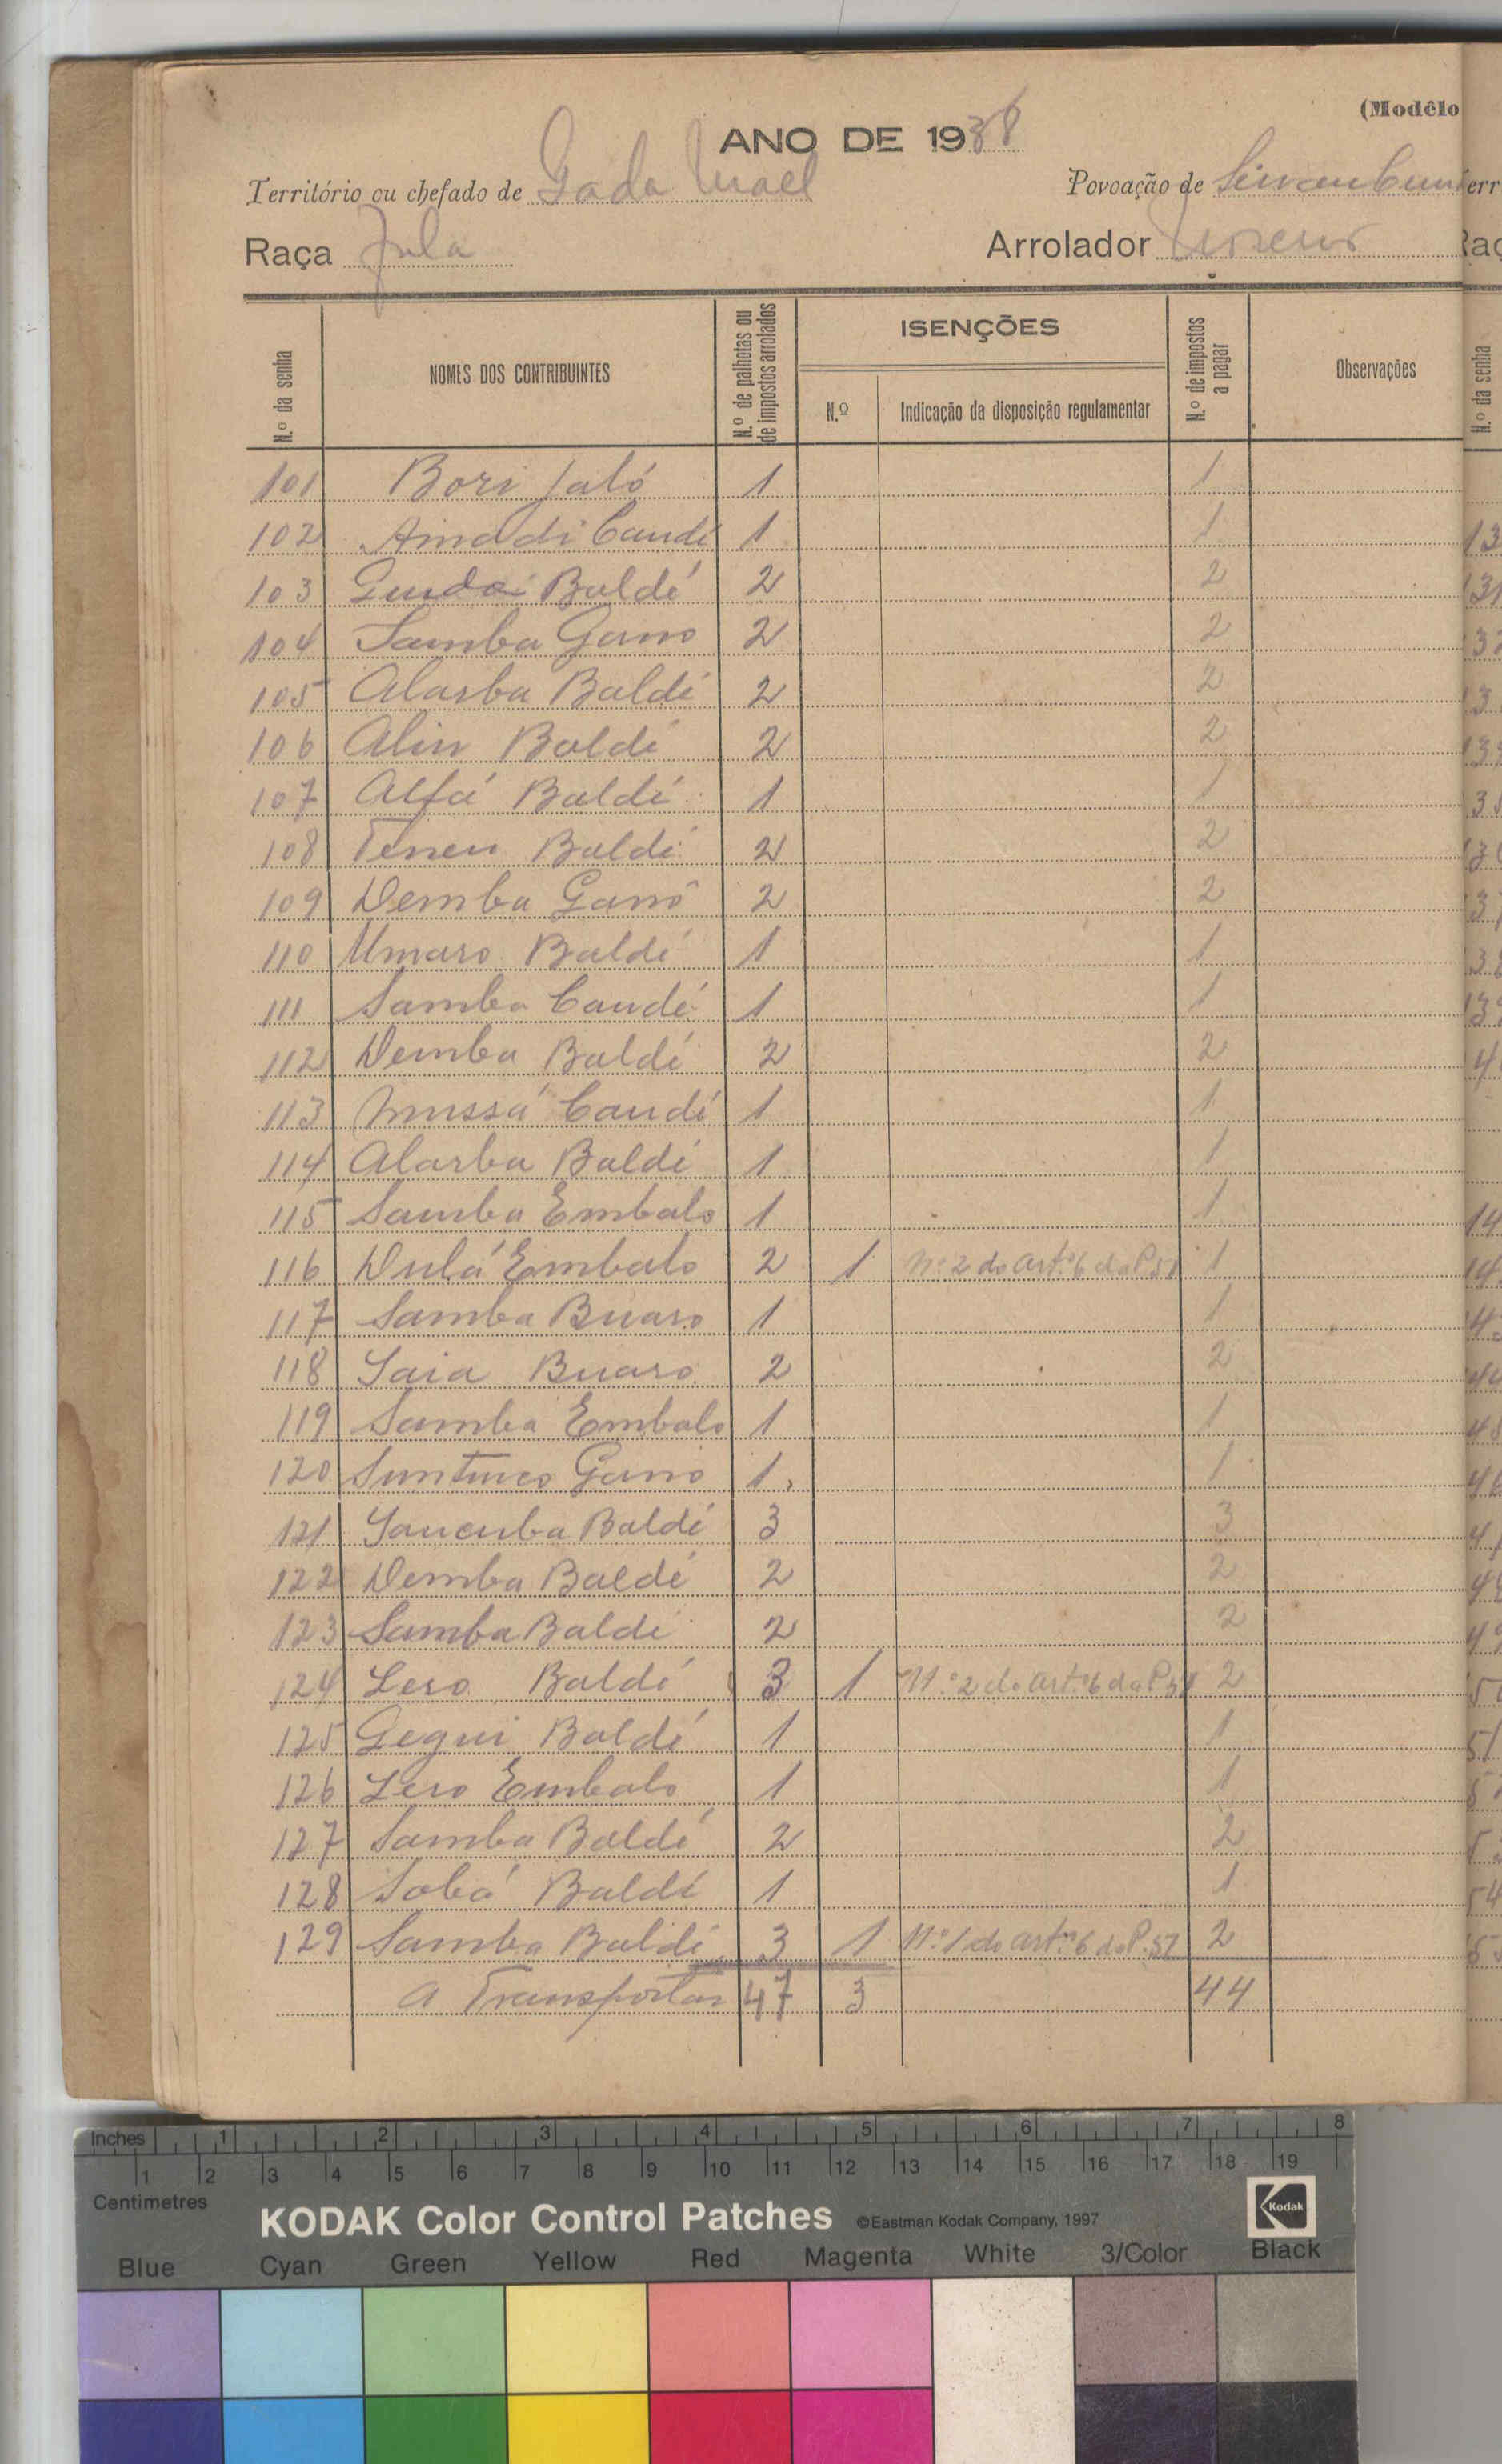 (Modêlo
ANO DE 1938
Território ou chefado de Gada Mael Povoação de
Raça Fula Arrolador Moreno
N.º da senha NOMES DOS CONTRIBUINTES N.º de palhotas ou de impostos arrolados ISENÇÕES N.º Indicação da disposição regulamentar N.º de impostos a pagar Observações
101 Bori Jaló 1 1
102 Amadi Candé 1 1
103 Baldé 2 2
104 Samba Gano 2 2
105 Alarba Baldé 2 2
106 Aliu Baldé 2 2
107 Alfá Baldé 1 1
108 Teneu Baldé 2 2
109 Demba Ganó 2 2
110 Umaro Baldé 1 1
111 Samba Candé 1 1
112 Demba Baldé 2 2
113 Mussá Candé 1 1
114 Alarba Baldé 1 1
115 Samba Embalo 1 1
116 Dulá Embalo 2 1 Nº 2 do artº 6 do P. 57 1
117 Samba Buaro 1 1
118 Saia Buaro 2 2
119 Samba Embalo 1 1
120 Gano 1 1
121 Yancuba Baldé 3 3
122 Demba Baldé 2 2
123 Samba Baldé 2 2
124 Lero Baldé 3 1 Nº 2 do artº 6 do P. 57 2
125 Gegui Baldé 1 1
126 Lero Embalo 1 1
127 Samba Baldé 2 2
128 Sobá Baldé 1 1
129 Samba Baldé 3 1 Nº 1 do artº 6 do P. 57 2
A Transportar 47 3 44
Inches 1 2 3 4 5 6 7 8
1 2 3 4 5 6 7 8 9 10 11 12 13 14 15 16 17 18 19
Centimetres
KODAK Color Control Patches ©Eastman Kodak Company, 1997 Kodak
Blue Cyan Green Yellow Red Magenta White 3/Color Black